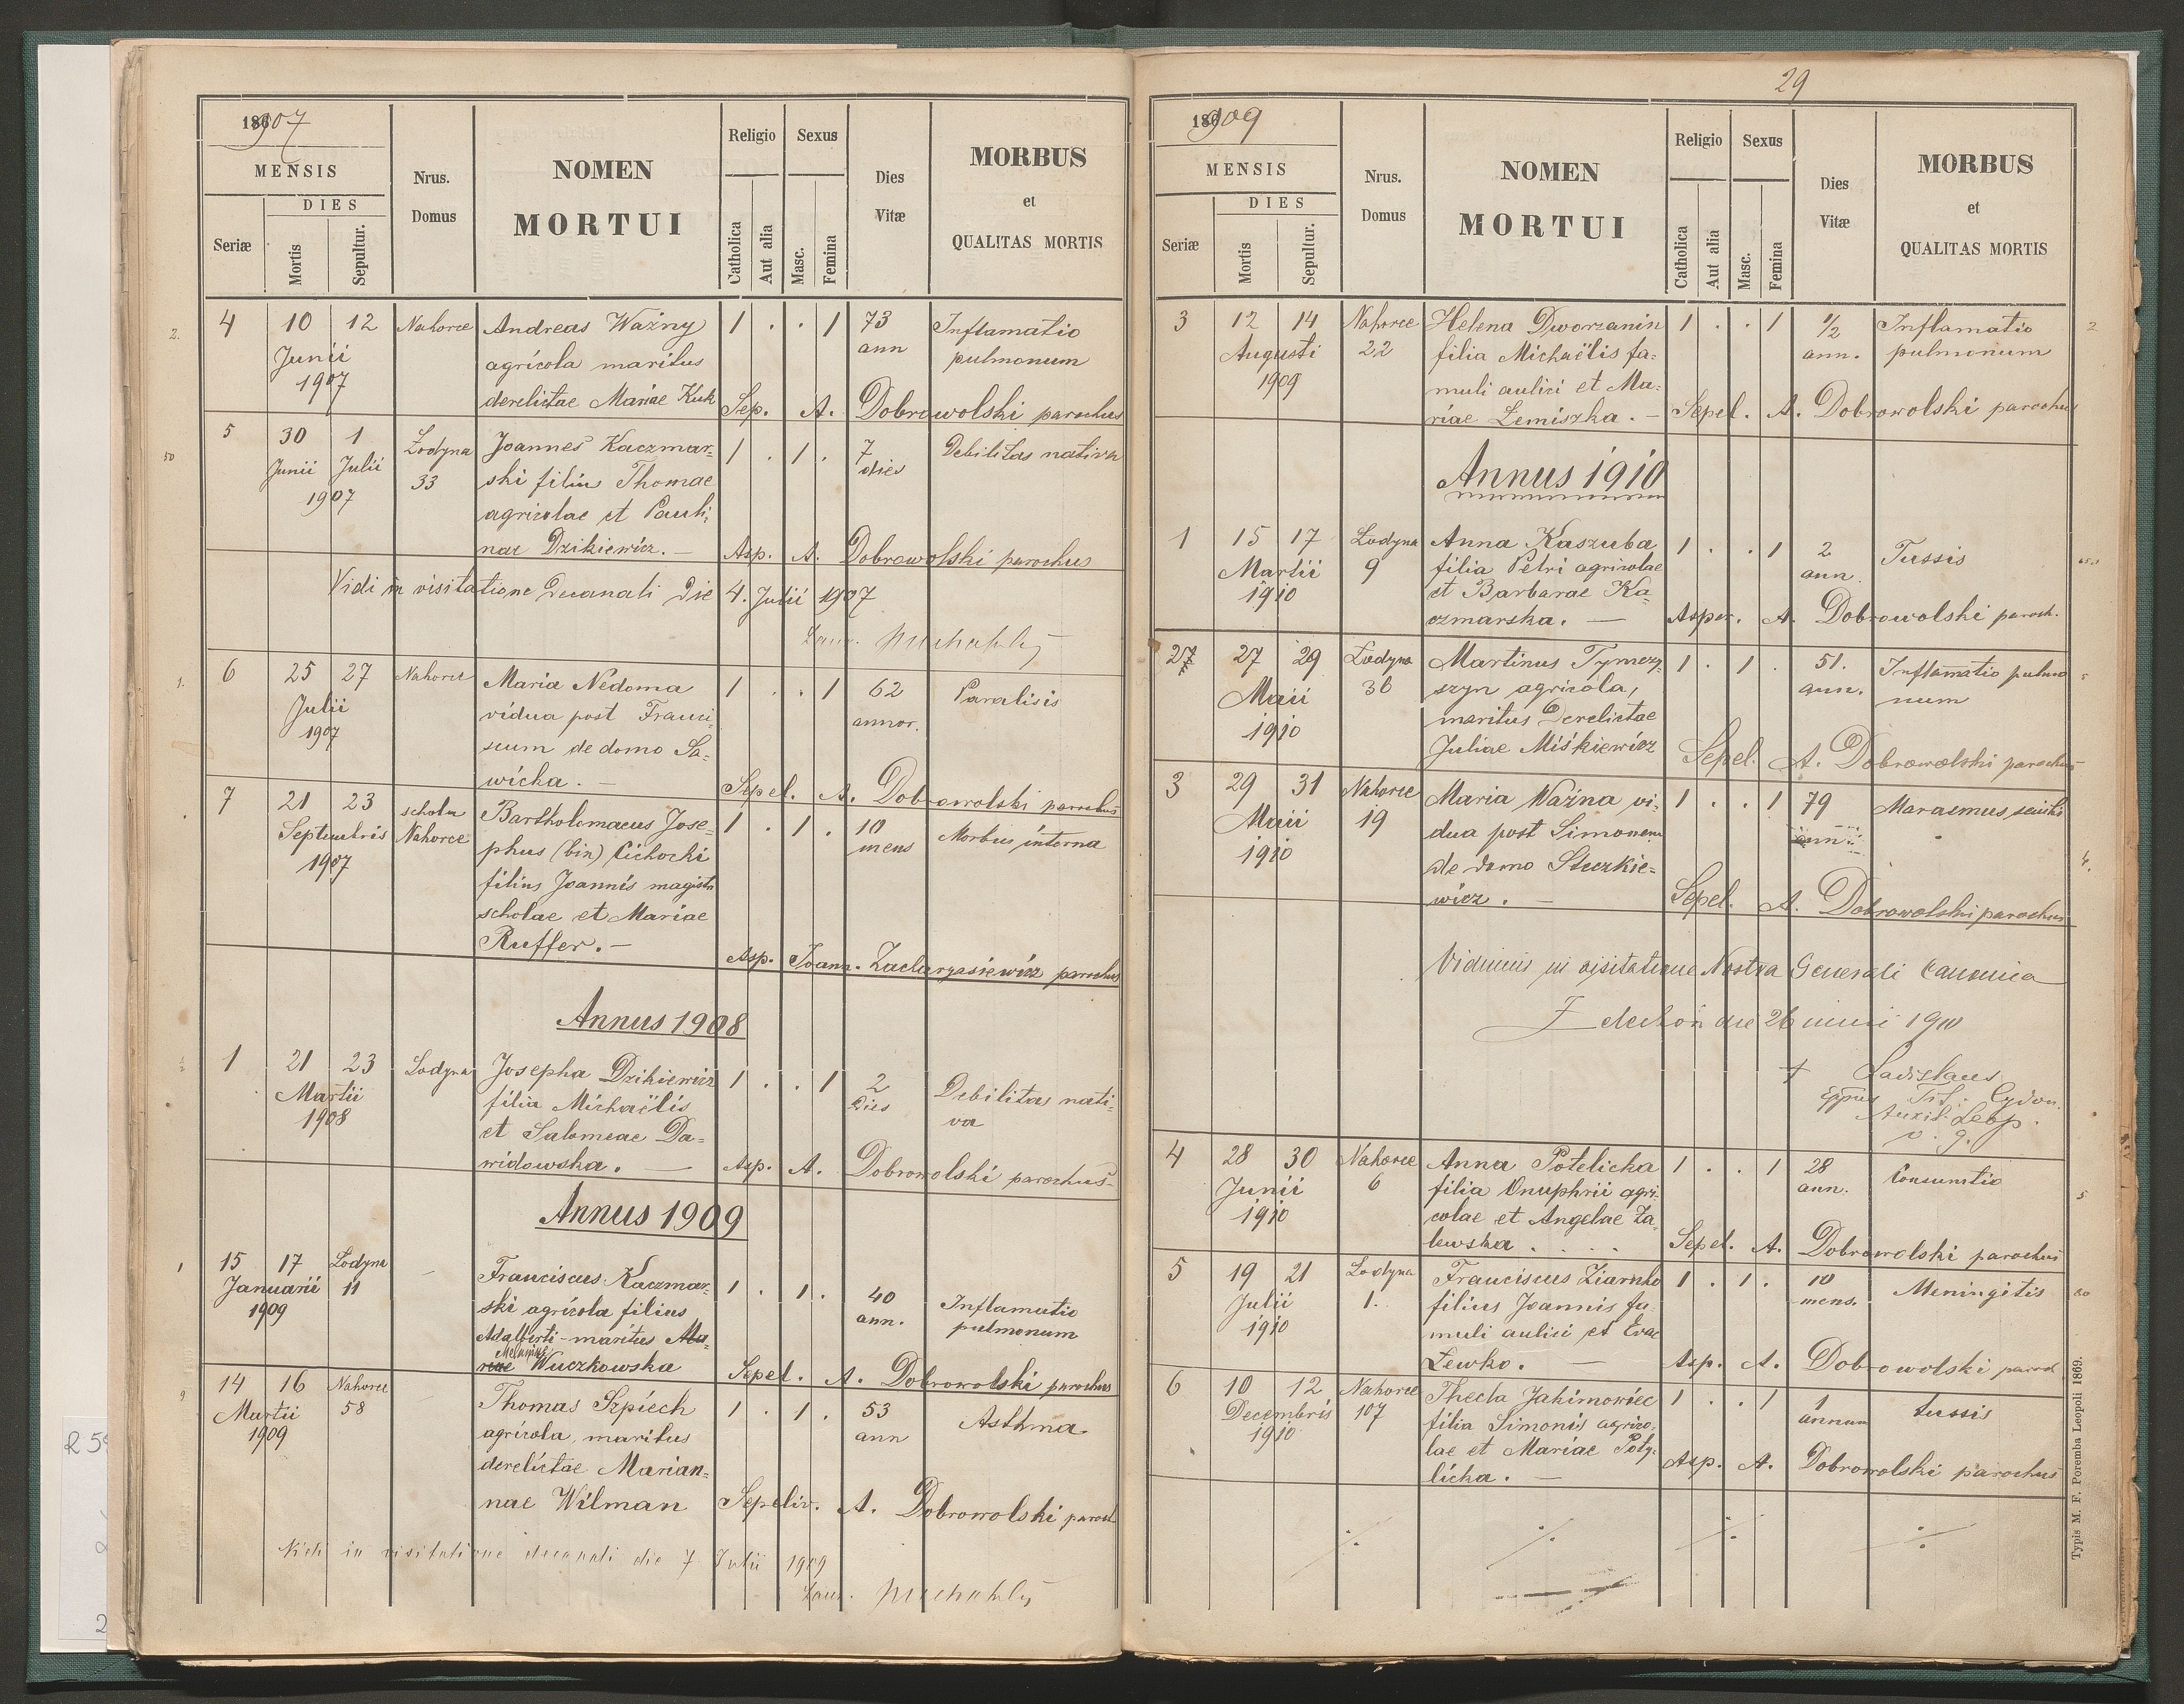 186 907
MENSIS
DIES
Seriæ
Mortis
Sepultur.
Nrus.
Domus
NOMEN
MORTUI
Religio
Catholica
Aut alia
Sexus
Masc.
Femina
Dies
Vitæ
MORBUS
et
QUALITAS MORTIS
2. 4 10 12 Nahorce Andreas Ważny 1 . . 1 73 Inflamatio
Junii agricola maritus ann pulmonum
1907 derelictae Mariae Kuk Sep. A. Dobrowolski parochus
50 5 30 1 Łodyna Joannes Kaczmar- 1 . 1 . 7 Debilitas nativa
Junii Julii 33 ski filius Thomae dies
1907 agricolae et Pauli-
nae Dzikiewicz. — Asp. A. Dobrowolski parochus
Vidi in visitatione Decanali die 4. Julii 1907
1. 6 25 27 Nahorce Maria Nedoma 1 . . 1 62 Paralisis
Julii vidua post Franci- annor.
1907 scum de domo Sa-
wicka. — Sepel. A. Dobrowolski parochus
7 21 23 schola Bartholomaeus Jose- 1 . 1 . 10 Morbus interna
Septembris Nahorce phus (bin) Cichocki mens
1907 filius Joannis magistri
scholae et Mariae
Ruffer. — Asp. Joann. Zacharyasiewicz parochus
Annus 1908
1 21 23 Łodyna Josepha Dzikiewicz 1 . . 1 2 Debilitas nati-
Martii filia Michaëlis dies va
1908 et Salomeae Da-
widowska. — Asp. A. Dobrowolski parochus
Annus 1909
1 15 17 Łodyna Franciscus Kaczmar- 1 . 1 . 40 Inflamatio
Januarii 11 ski agricola filius ann. pulmonum
1909 Adalberti - maritus Ma-
Melaniae
riae Wuczkowska Sepel. A. Dobrowolski parochus
2 14 16 Nahorce Thomas Szpiech 1 . 1 . 53 Asthma
Martii 58 agricola, maritus ann
1909 derelictae Marian-
nae Wilman Sepeliv. A. Dobrowolski paroch
Vidi in visitatione decanali die 7 Julii 1909
29
186 909
MENSIS
DIES
Seriæ
Mortis
Sepultur.
Nrus.
Domus
NOMEN
MORTUI
Religio
Catholica
Aut alia
Sexus
Masc.
Femina
Dies
Vitæ
MORBUS
et
QUALITAS MORTIS
3 12 14 Nahorce Helena Dworzanin 1 . . 1 1/2 Inflamatio 2
Augusti 22 filia Michaëlis fa- ann. pulmonum
1909 muli aulici et Ma-
riae Lemiszka. — Sepel. A. Dobrowolski parochus
Annus 1910
1 15 17 Łodyna Anna Kaszuba 1 . . 1 2 Tussis
Martii 9 filia Petri agricolae ann.
1910 et Barbarae Ka-
czmarska. — Asper. A. Dobrowolski paroch.
27 27 29 Łodyna Martinus Tymczy- 1 . 1 . 51. Inflamatio pulmo
Maii 36 szyn agricola, ann. num
1910 maritus derelictae
Juliae Miśkiewicz Sepel. A. Dobrowolski parochus
3 29 31 Nahorce Maria Ważna vi- 1 . . 1 79 Marasmus senilis
Maii 19 dua post Simonem ann.
1910 de domo Steczkie-
wicz. — Sepel. A. Dobrowolski parochus
Vidimus in visitatione Nostra Generali Canonica
die 26 iunii 1910
† Ladislaus
Eppus Tit: Cydon.
Auxil. Leop.
v. g.
4 28 30 Nahorce Anna Potelicka 1 . . 1 28 Consumtio
Junii 6 filia Onuphrii agri- ann. 5
1910 colae et Angelae Za-
lewska . . . . Sepel. A. Dobrowolski parochus
5 19 21 Łodyna Franciscus Ziarnko 1 . 1 . 10 Meningitis
Julii 1. filius Joannis fa- mens.
1910 muli aulici et Evae
Lewko. — Asp. A. Dobrowolski paroch
6 10 12 Nahorce Thecla Jakimowiec 1 . . 1 1 tussis
Decembris 107 filia Simonis agrico- annum
1910 lae et Mariae Poty-
licka. — Asp. A. Dobrowolski parochus
Typis M. F. Poremba Leopoli 1869.